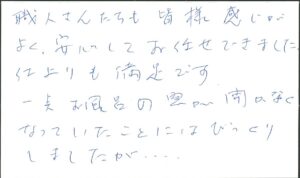 職人さんたちも皆様感じが
よく、安心してお任せできました
仕上りも満足です
一点お風呂の窓が開かなく
なっていたことにはびっくり
しましたが.....